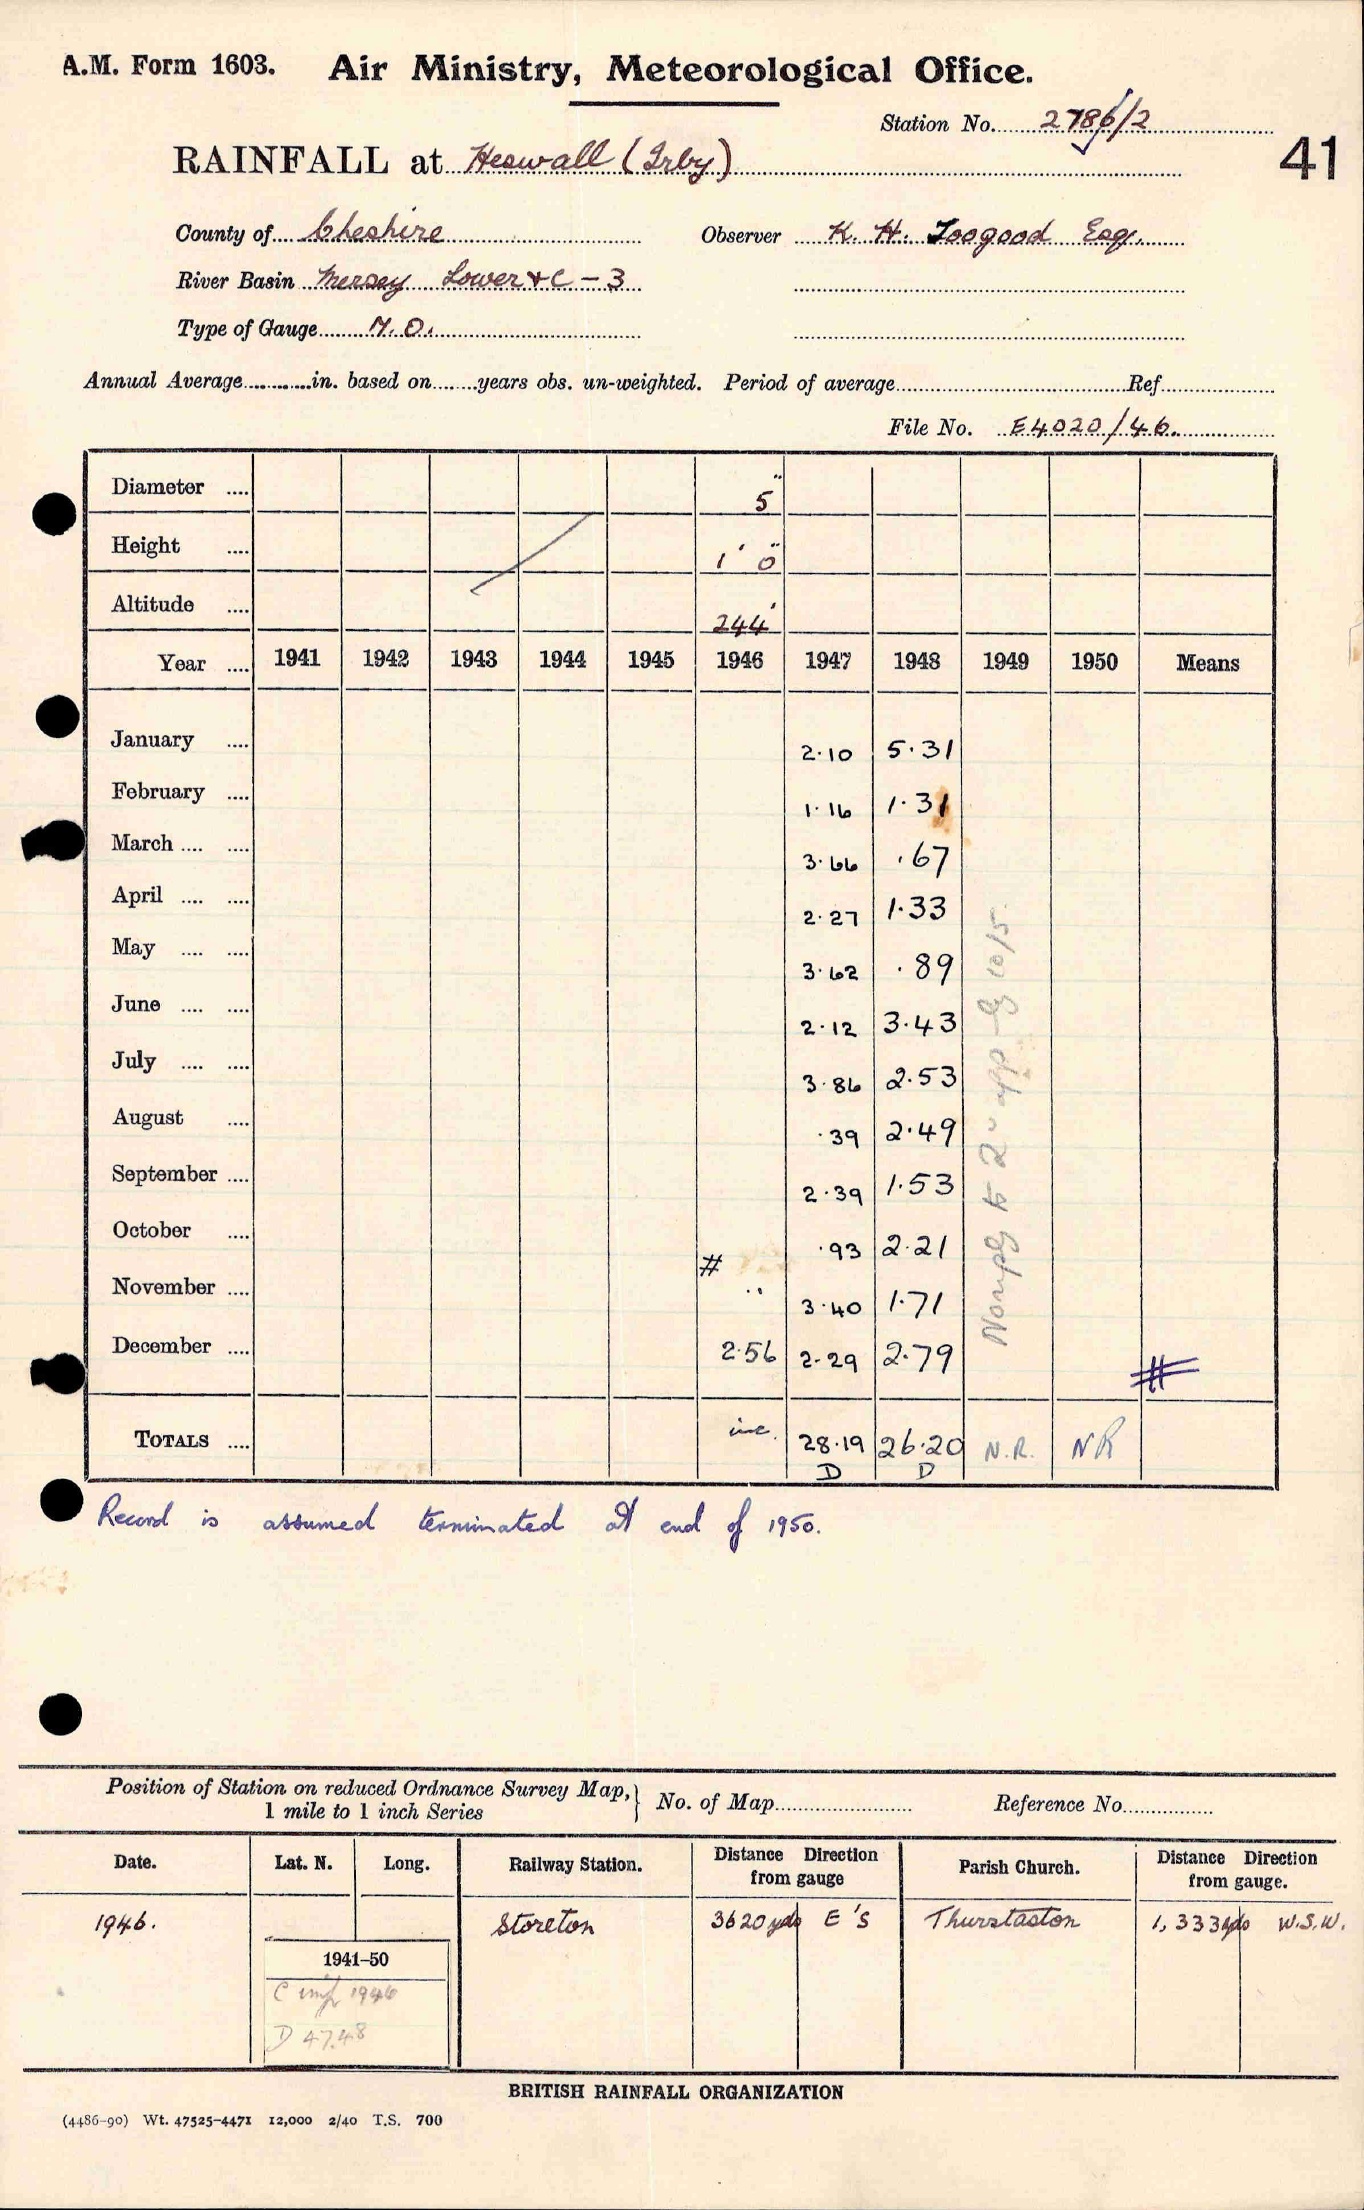 A.M. Form 1603. Air Ministry, Meteorological Office.
Station No. 2786/2
41
RAINFALL at Heswall (Irby)
County of Cheshire Observer K. H. Toogood Esq.
River Basin Mersey Lower + C - 3
Type of Gauge M.O.
Annual Average in. based on years obs. un-weighted. Period of average Ref
File No. E4020/46.
Diameter .... 5"
Height .... 1' 0"
Altitude .... 244'
Year .... 1941 1942 1943 1944 1945 1946 1947 1948 1949 1950 Means
January .... 2.10 5.31
February .... 1.16 1.31
March .... .... 3.66 .67
April .... .... 2.27 1.33
May .... .... 3.62 .89
June .... .... 2.12 3.43
July .... .... 3.86 2.53
August .... .39 2.49
September .... 2.39 1.53
October .... .93 2.21
#
November .... .. 3.40 1.71
December .... 2.56 2.29 2.79
#
to 2 app 10/5.
TOTALS .... inc. 28.19 26.20 N.R. NR
D D
Record is assumed terminated at end of 1950.
Position of Station on reduced Ordnance Survey Map, } No. of Map Reference No.
1 mile to 1 inch Series
Date. Lat. N. Long. Railway Station. Distance Direction Parish Church. Distance Direction
from gauge from gauge.
1946. Storeton 3620 yds E 'S Thurstaston 1,333 yds W.S.W.
1941-50
C 1946
D 47.48
BRITISH RAINFALL ORGANIZATION
(4486-90) Wt. 47525-4471 12,000 2/40 T.S. 700